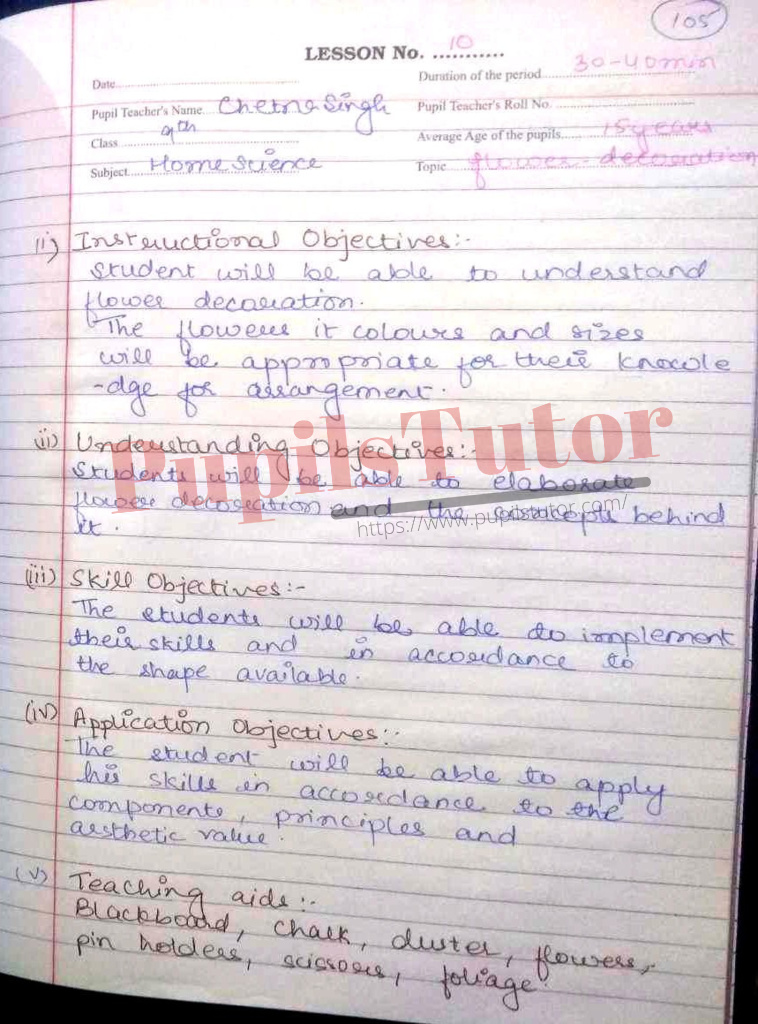 105
LESSON No. ...10........
Date
Duration of the period 30-40min
Pupil Teacher's Name Chetna Singh
Pupil Teacher's Roll No.
Class 9th
Average Age of the pupils 15 years
Subject Home Science
Topic flower-decoration
(i) Instructional Objectives:-
Student will be able to understand
flower decoration.
The flowers it colours and sizes
will be appropriate for their knowle
-dge for arrangement.
(ii) Understanding Objectives:-
Students will be able to elaborate
flower decoration and the concepts behind
it.
PupilsTutor
https://www.pupilstutor.com/
(iii) Skill Objectives:-
The students will be able to implement
their skills and in accordance to
the shape available.
(iv) Application Objectives:-
The student will be able to apply
his skills in accordance to the
components, principles and
aesthetic value.
(v) Teaching aids:-
Blackboard, chalk, duster, flowers,
pin holders, scissors, foliage.